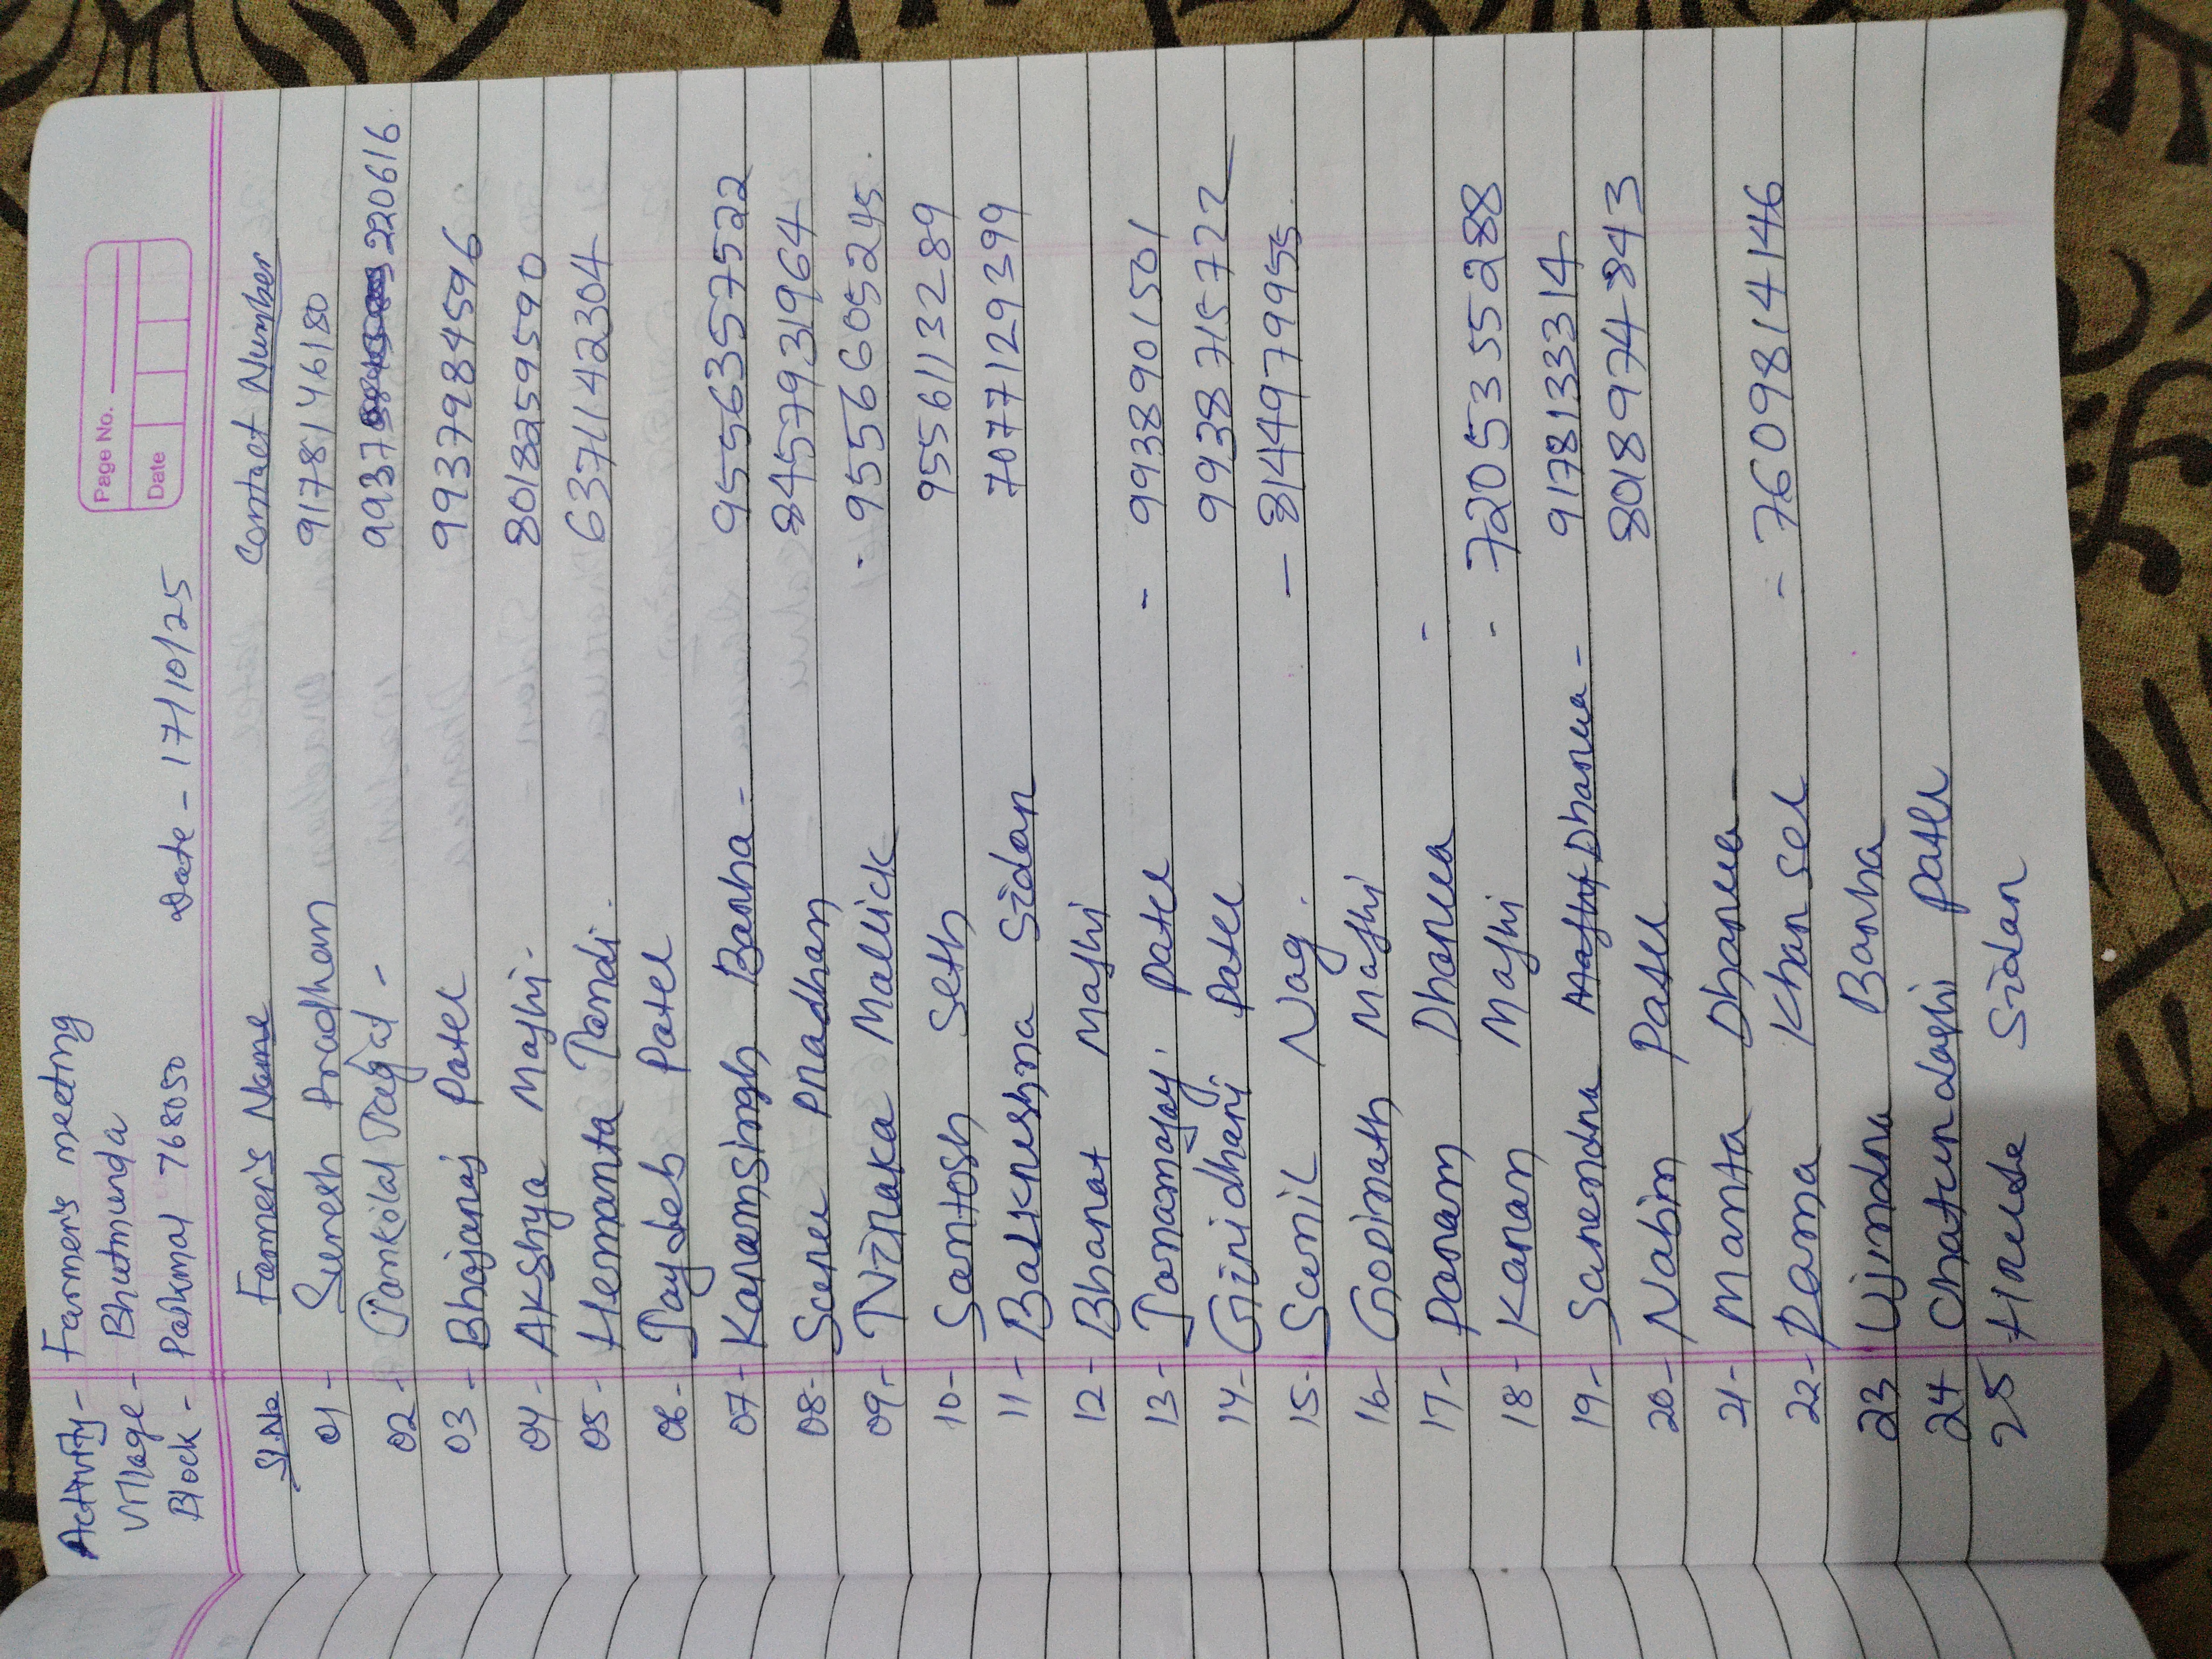 Page No.
Date
Activity - Farmer's meeting
Village - Bhutmunda
Block - Paikmal 768050 Date - 17/10/25
Sl.No Farmer's Name Contact Number
01 - Suresh Pradhan 9178146180
02 - Jankilal Jagat - 9937 220616
03 - Bhojaraj Patel 9937984596
04 - Akshya Majhi - 8018259590
05 - Hemanta Tandi. 6371142304
06 - Jaydeb Patel
07 - Karamsingh Barha - 9556357522
08 - Saru Pradhan 8457931964
09 - Niraka Mallick - 9556605245
10 - Santosh Seth 9556113289
11 - Balkrushna Sidar 7077129399
12 - Bharat Majhi
13 - Janamajay Patel - 9938901501
14 - Giridhari Patel 9938715722
15 - Sunil Nag. - 8144979955
16 - Gopinath Majhi
17 - Param Dharua -
18 - Karan Majhi - 7205355288
19 - Surendra Dharua - 9178133314
20 - Nabin Patel 8018974843
21 - Mamta Dharua
22 - Rama Khansel - 7609814146
23 Ujindra Barha
24 Chaturdashi Patel
25 Hrude Sidar